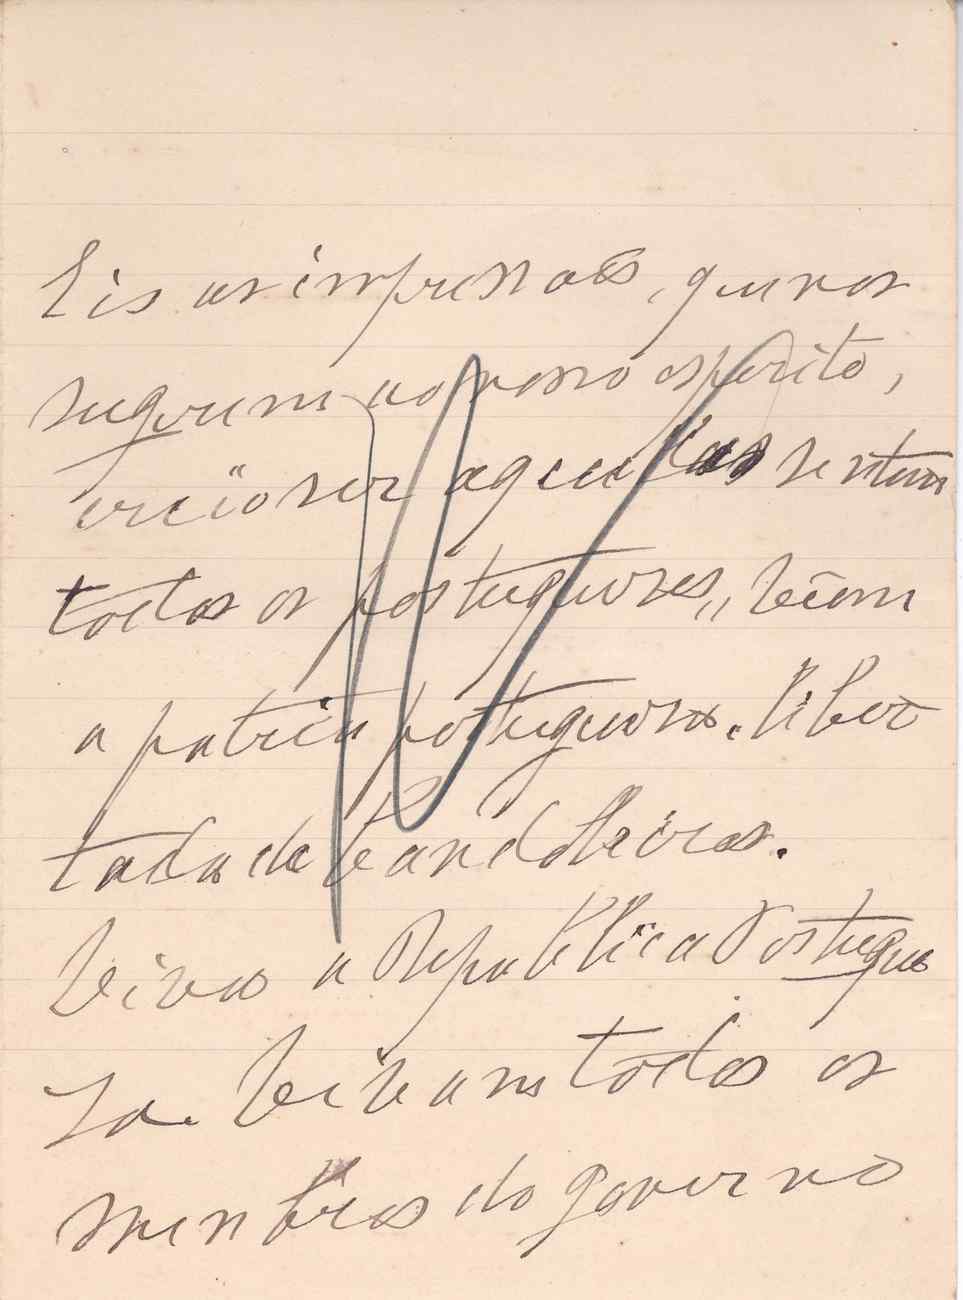 Eis as impressoẽs, que nos
sugerem ao nosso esperito,
creio ser aquellas se
todos os portuguezes,, vêem
a patria portugueza. liber
tada de bandolleiros.
Viva a Republlica Portugue
za. Vivam todos os
menbros do governo